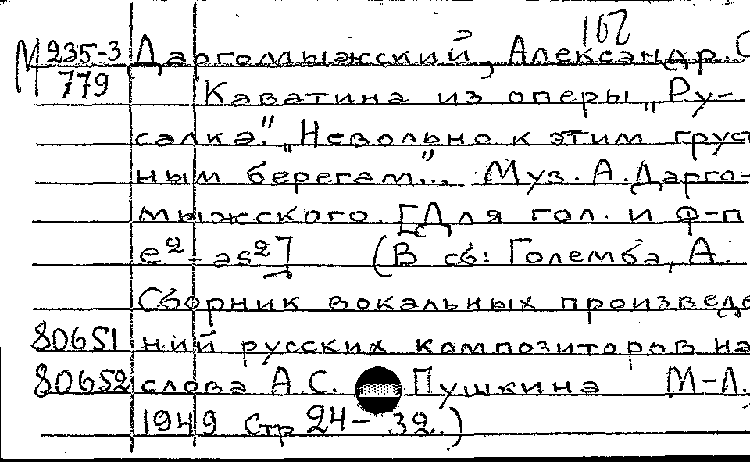 162
М 235-3 Даргомыжский, Александр С
779 Каватина из оперы „Ру-
салка". „Невольно к этим грус
ным берегам"... Муз. А. Дарго-
мыжского. [Для гол. и ф-п
e² - as²] (В сб: Големба, А.
Сборник вокальных произведе
80651 ний русских композиторов на
80652 слова А.С. Пушкина М-Л.
1949 Стр 24-32.)